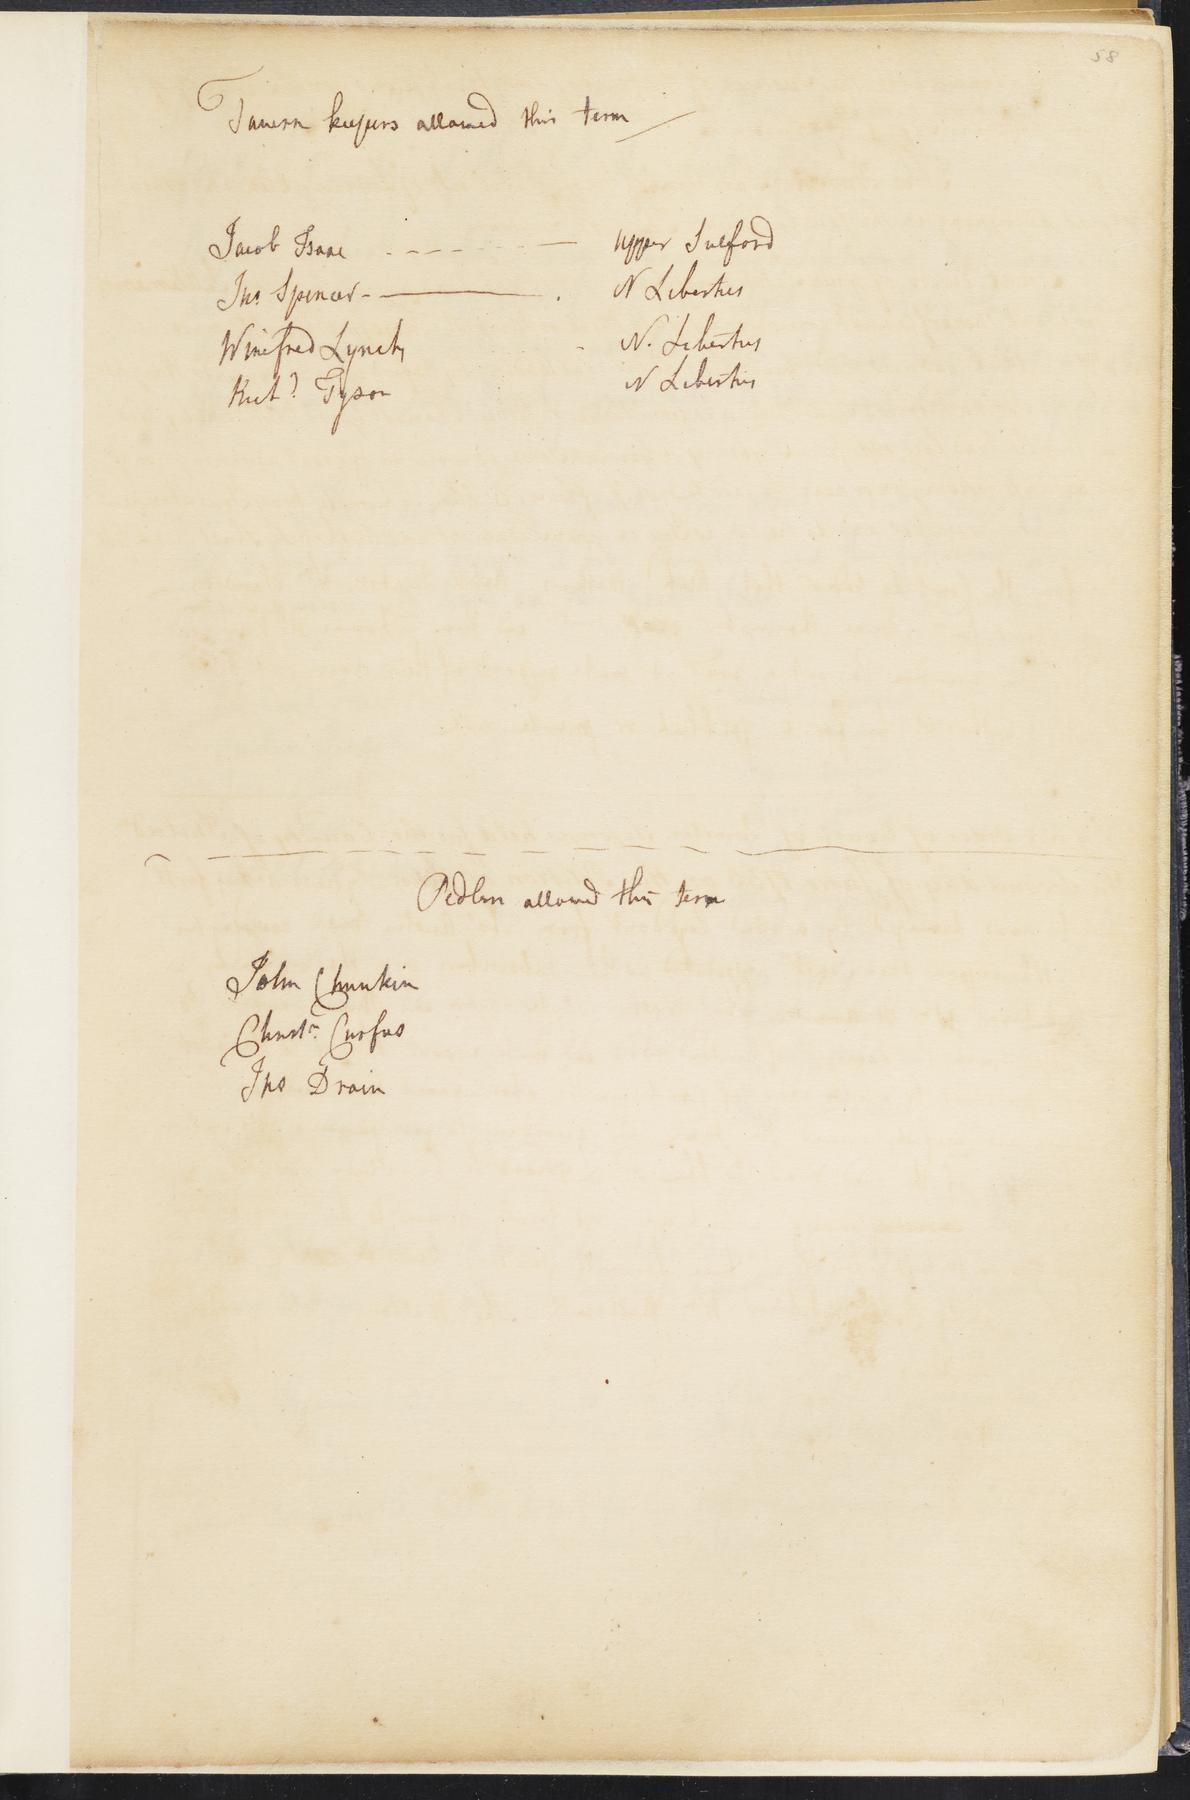 58
Tavern keepers allowed this term
Jacob Isaac - - - - - Upper Sulford
Jno. Spencer - N Liberties
Winefred Lynch - N. Liberties
Tyson N Liberties
Pedlers allowed this term
John Chunkin
Christr. Curfus
Jno Drain